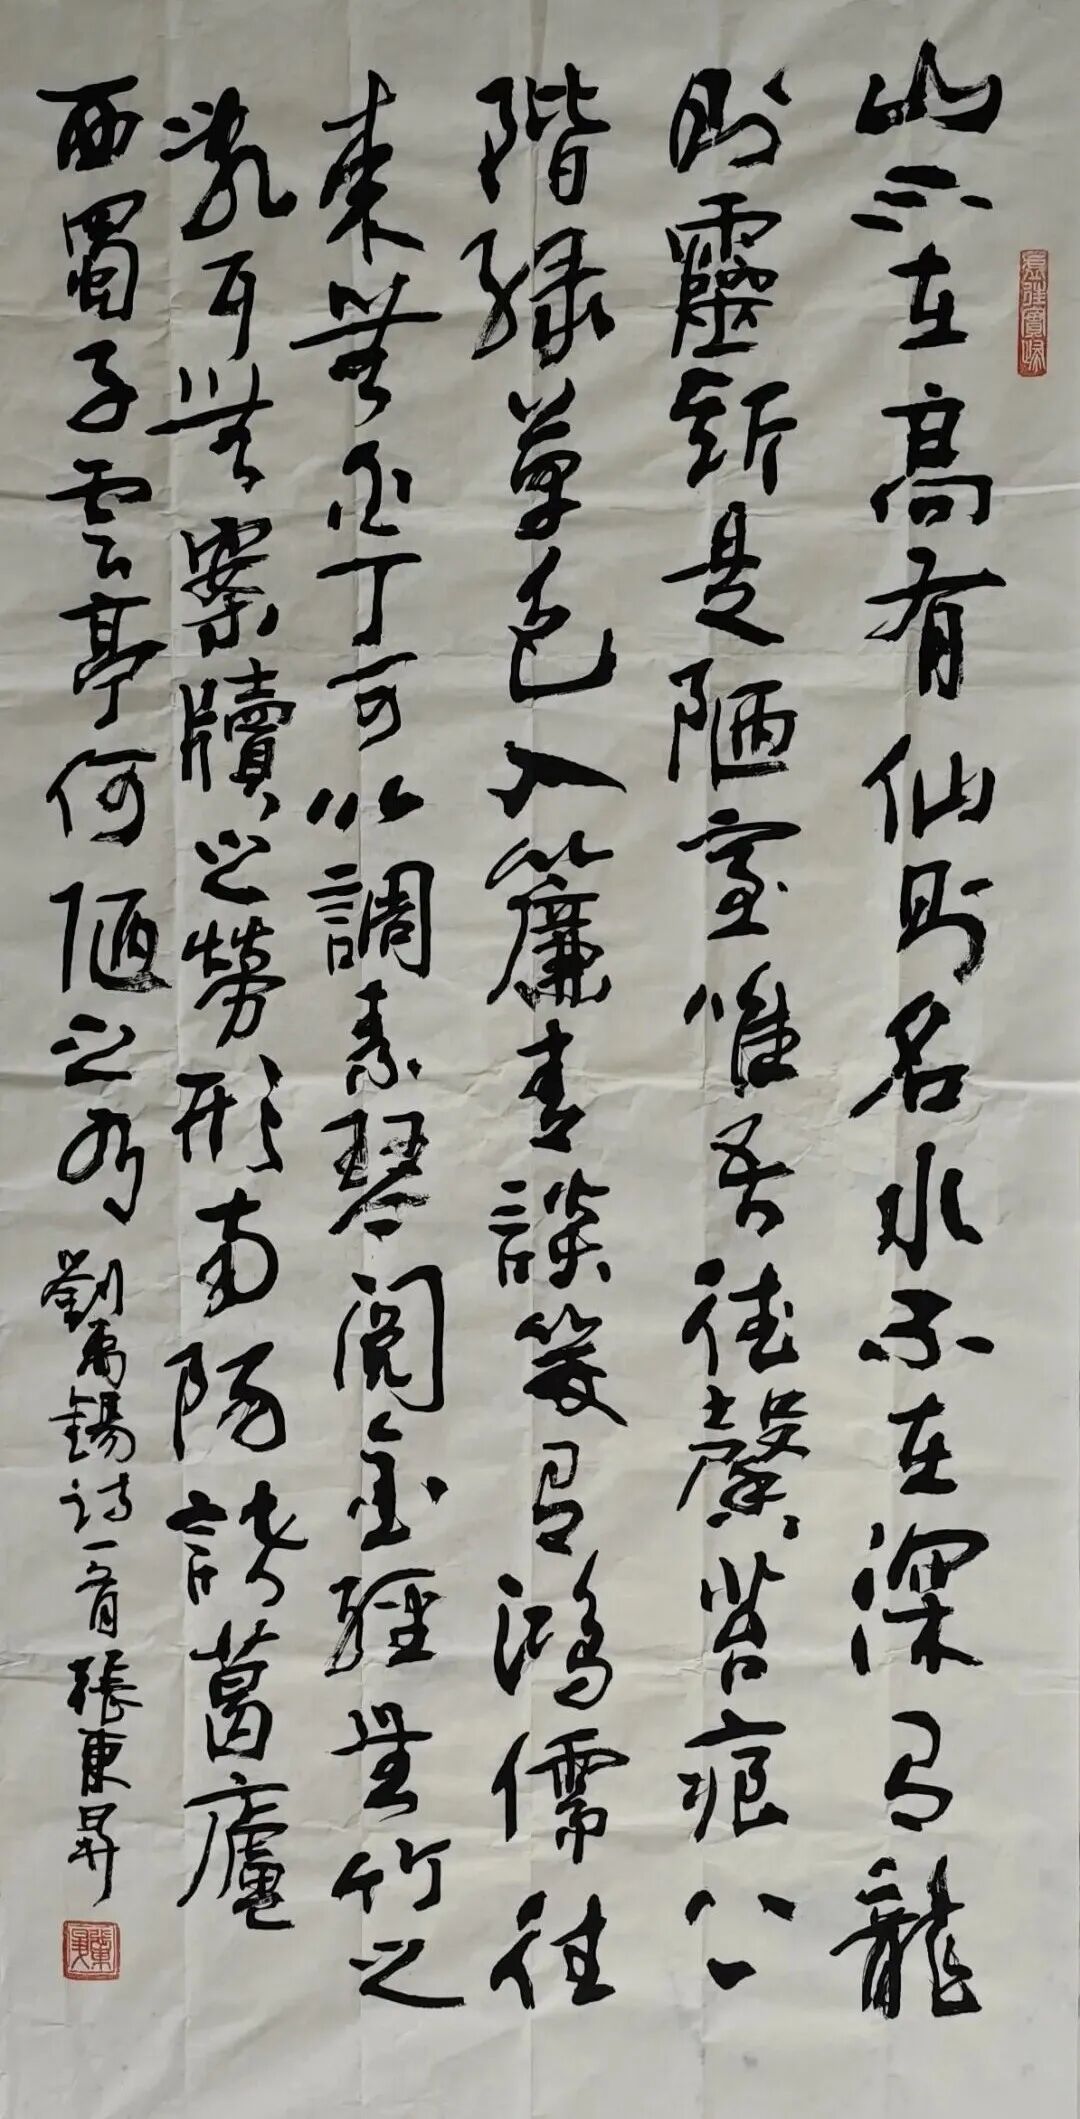 山不在高有仙則名水不在深有龍
則靈斯是陋室惟吾德馨苔痕上
階綠草色入簾青談笑有鴻儒往
來無白丁可以調素琴閱金經無竹之
亂耳無案牘之勞形南陽諸葛廬
西蜀子雲亭何陋之有 劉禹錫詩一首 張東昇
虛往實歸